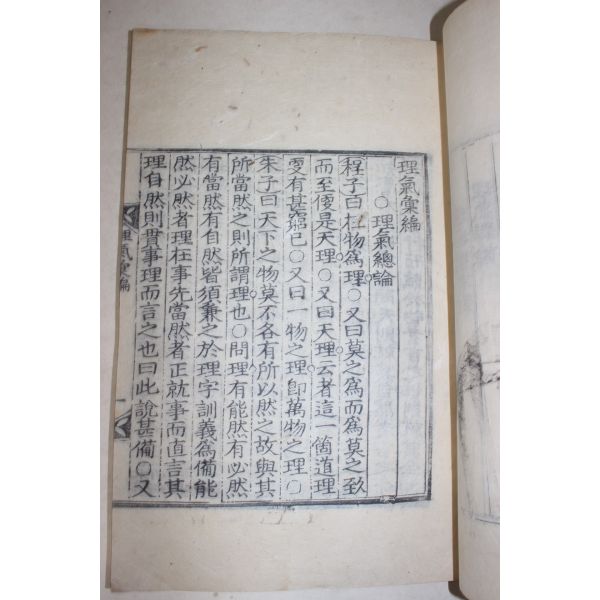 理氣彙編
○理氣總論
程子曰在物爲理○又曰莫之爲而爲莫之致
而至便是天理○又曰天理云者這一箇道理
更有甚窮已○又曰一物之理卽萬物之理○
朱子曰天下之物莫不各有所以然之故與其
所當然之則所謂理也○問理有能然有必然
有當然有自然皆須兼之於理字訓義爲備能
然必然者理在事先當然者正就事而直言其
理自然則貫事理而言之也曰此說甚備○又
理氣彙編
一